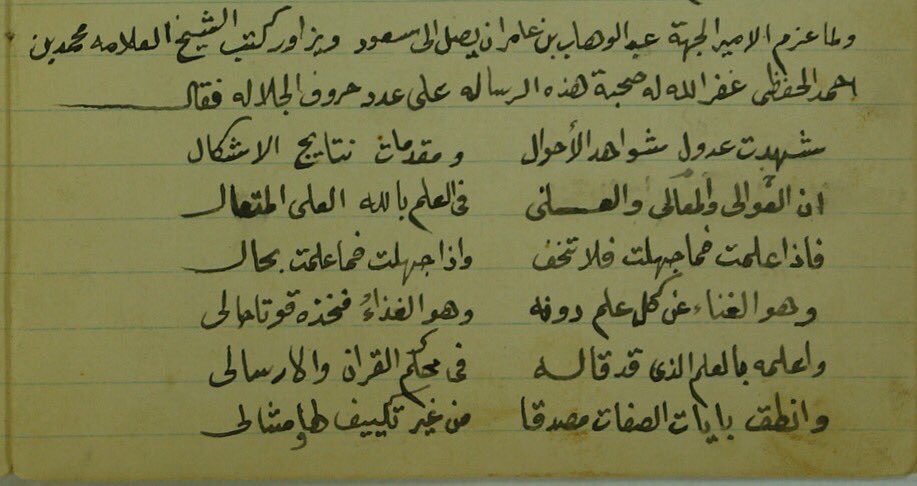 ولما عزم الامير الجهة عبد الوهاب بن عامر ان يصل الى سعود ويزاور كتب الشيخ العلامه محمد بن
احمد الحفظي غفر الله له صحبة هذه الرساله على عدد حروف الجلاله فقال
شهدت عدول شواهد الأحوال ومقدمات نتايج الاشكال
ان العوالى والمعالى والعلى فى العلم بالله العلى المتعال
فاذا علمت فما جهلت فلا تخف واذا جهلت فما علمت بحال
وهو الغناء عن كل علم دونه وهو الغذاءُ فخذه قوتا حالى
واعلمه بالعلم الذى قد قاله فى محكم القران والارسالى
وانطق بايات الصفات مصدقا من غير تكييف لها ومثالى